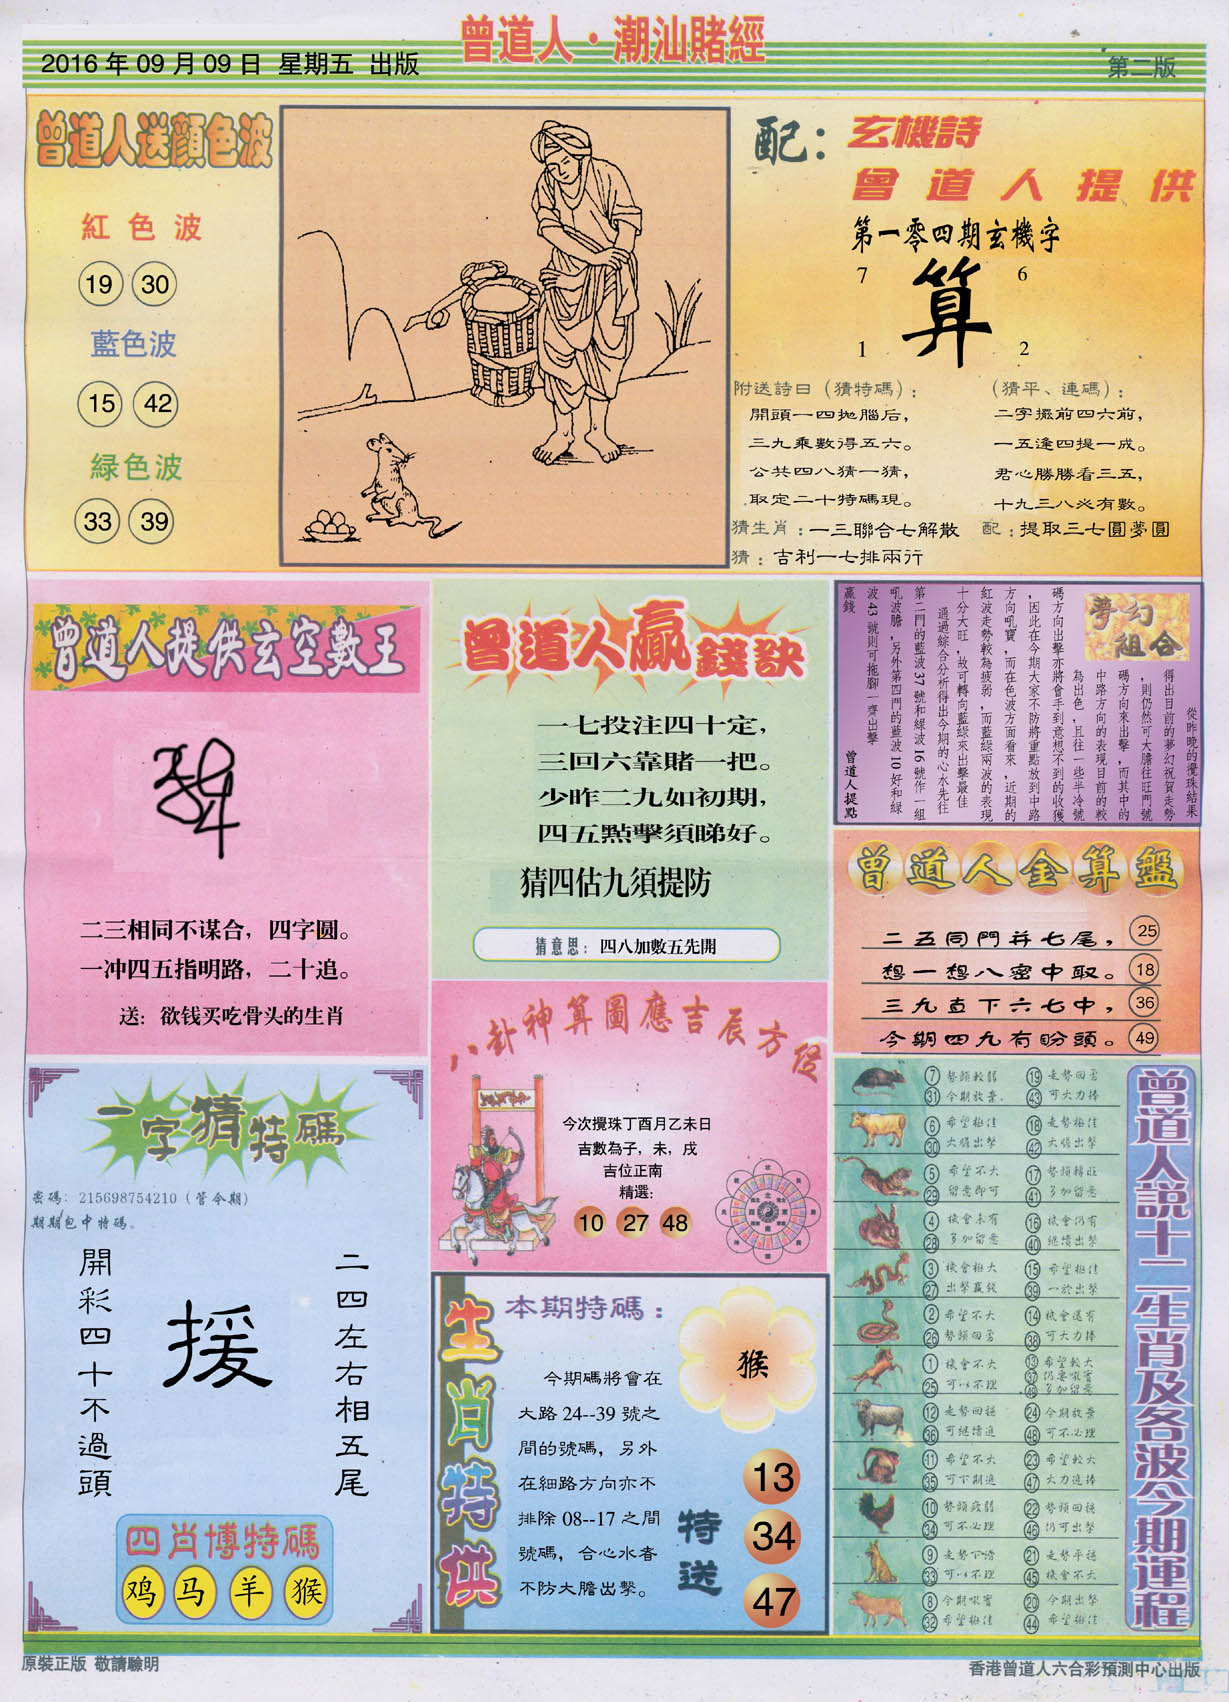 曾道人·潮汕賭經
2016 年 09 月 09 日 星期五 出版
第二版
曾道人送顔色波
紅色波
19 30
藍色波
15 42
緑色波
33 39
配：
玄機詩
曾道人提供
第一零四期玄機字
7 6
算
1 2
附送詩曰（猜特碼）：
開頭一四抛腦后，
三九乘數得五六。
公共四八猜一猜，
取定二十特碼現。
（猜平、連碼）：
二字擺前四六前，
一五逢四提一成。
君心勝勝看三五，
十九三八必有數。
猜生肖：一三聯合七解散 配：提取三七圓夢圓
猜：吉利一七排兩行
曾道人提供玄空數王
二三相同不谋合，四字圆。
一冲四五指明路，二十追。
送：欲钱买吃骨头的生肖
曾道人贏錢訣
一七投注四十定，
三回六靠賭一把。
少昨二九如初期，
四五點擊須睇好。
猜四估九須提防
猜意思：四八加數五先開
夢幻
組合
從昨晚的攪珠結果
得出目前的夢幻祝賀走勢
，則仍然可大膽往旺門號
碼方向來出擊，而其中的
中路方向的表現目前的較
為出色，且往一些半冷號
碼方向出擊亦將會手到意想不到的收獲
，因此在今期大家不防將重點放到中路
方向吼寶，而在色波方面看來，近期的
紅波走勢較為疲弱，而藍綠兩波的表現
十分大旺，故可轉向藍綠來出擊最佳
通過綜合分析得出今期的心水先往
第二門的藍波 37 號和綠波 16 號作一組
吼波膽，另外第四門的藍波 10 好和綠
波 43 號則可拖腳一齊出擊
贏錢
曾道人提點
曾道人金算盤
二五同門并七尾， 25
想一想八密中取。 18
三九直下六七中， 36
今期四九有盼頭。 49
八卦神算圖應吉辰方位
今次攪珠丁酉月乙未日
吉數為子，未，戌
吉位正南
精選：
10 27 48
一字猜特碼
密碼：215698754210（管今期）
期期包中特碼。
開彩四十不過頭
援
二四左右相五尾
四肖博特碼
鸡 马 羊 猴
生肖特供
本期特碼：
猴
今期碼將會在
大路 24--39 號之
間的號碼，另外
在細路方向亦不
排除 08--17 之間
號碼，合心水者
不防大膽出擊。
特送
13
34
47
曾道人説十二生肖及各波今期運程
7 勢頭較弱 19 走勢回勇
31 今期放棄 43 可大力捧
6 希望極佳 18 走勢極佳
30 大膽出擊 42 大膽出擊
5 希望不大 17 勢頭轉旺
29 留意即可 41 多加留意
4 機會未有 16 機會仍有
28 多加留意 40 繼續出擊
3 機會極大 15 希望極佳
27 出擊贏錢 39 一於出擊
2 希望不大 14 機會還有
26 勢頭回勇 38 可大力捧
1 機會不大 13 希望較大
25 可以不理 37 仍要吸寶
49 多加留意
12 走勢回穩 24 今期放棄
36 可繼續追 48 可不必理
11 希望不大 23 希望較大
35 可下期追 47 大力追捧
10 勢頭疲弱 22 勢頭回穩
34 可不必理 46 仍可出擊
9 走勢下滑 21 走勢平穩
33 可以不理 45 機會不大
8 今期吸寶 20 今期出擊
32 希望極佳 44 希望極佳
原裝正版 敬請驗明
香港曾道人六合彩預測中心出版